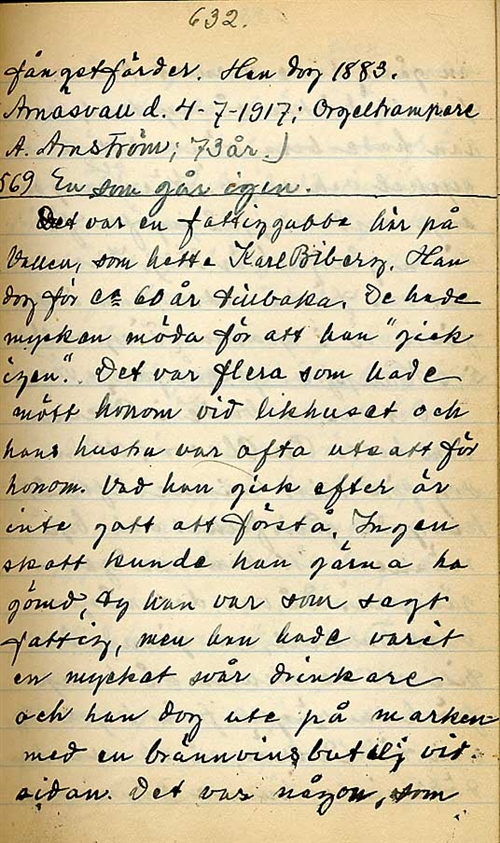 632.
fångstfärder. Han dog 1883.
Arnäsvall d. 4-7-1917; Orgeltrampare
A. Arnström; 73 år.)
569 En som går igen.
Det var en fattiggubbe här på
Vallen, som hette Karl Biberg. Han
dog för ca 60 år tillbaka. De hade
mycken möda för att han "gick
igen". Det var flera som hade
mött honom vid likhuset och
hans hustru var ofta utsatt för
honom. Vad han gick efter är
inte gott att förstå. Ingen
skatt kunde han gärna ha
gömd, ty han var som sagt
fattig, men han hade varit
en mycket svår drinkare
och han dog ute på marken
med en brännvinsbutelj vid
sidan. Det var någon, som